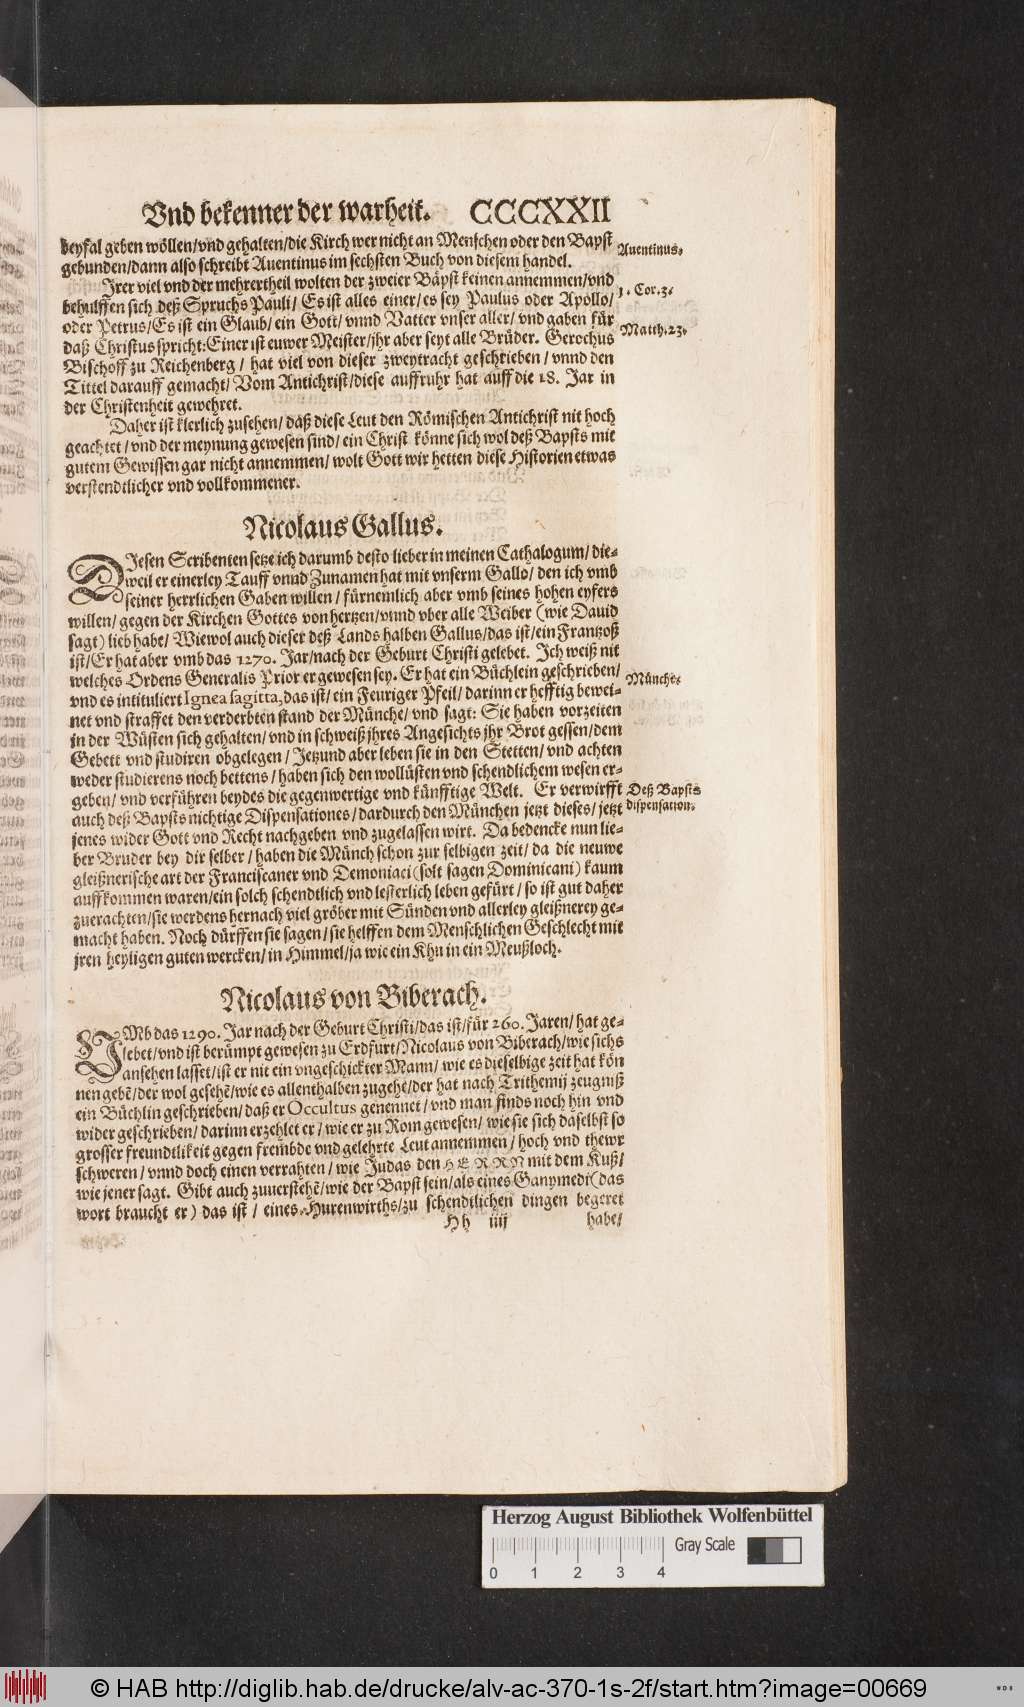 Vnd bekenner der warheit. CCCXXII
beyfal geben wöllen/vnd gehalten/die Kirch wer nicht an Menschen oder den Bapst
gebunden/dann also schreibt Auentinus im sechsten Buch von diesem handel.
Auentinus.
Jrer viel vnd der mehrertheil wolten der zweier Bäpst keinen annemmen/vnd
behulffen sich deß Spruchs Pauli/ Es ist alles einer/es sey Paulus oder Apollo/
1. Cor. 3.
oder Petrus/Es ist ein Glaub/ein Gott/ vnnd Vatter vnser aller/ vnd gaben für
daß Christus spricht: Einer ist euwer Meister/jhr aber seyt alle Brüder. Gerochus
Matth. 23.
Bischoff zu Reichenberg/ hat viel von dieser zweytracht geschrieben/ vnnd den
Tittel darauff gemacht/ Vom Antichrist/diese auffruhr hat auff die 18. Jar in
der Christenheit gewehret.
Daher ist klerlich zusehen/ daß diese Leut den Römischen Antichrist nit hoch
geachtet/vnd der meynung gewesen sind/ein Christ könne sich wol deß Bapsts mit
gutem Gewissen gar nicht annemmen/ wolt Gott wir hetten diese Historien etwas
verstendtlicher vnd vollkommener.
Nicolaus Gallus.
DJesen Scribenten setze ich darumb desto lieber in meinen Cathalogum/ die-
weil er einerley Tauff vnnd Zunamen hat mit vnserm Gallo/ den ich vmb
seiner herrlichen Gaben willen/ fürnemlich aber vmb seines hohen eyfers
willen/ gegen der Kirchen Gottes von hertzen/vnnd vber alle Weiber (wie Dauid
sagt) lieb habe/ Wiewol auch dieser deß Lands halben Gallus/das ist/ein Frantzoß
ist/Er hat aber vmb das 1270. Jar/nach der Geburt Christi gelebet. Jch weiß nit
welches Ordens Generalis Prior er gewesen sey. Er hat ein Büchlein geschrieben/
vnd es intituliert Ignea sagitta, das ist/ ein Feuriger Pfeil/ darinn er hefftig bewei-
Münche.
net vnd straffet den verderbten stand der Münche/ vnd sagt: Sie haben vorzeiten
in der Wüsten sich gehalten/vnd in schweiß jhres Angesichts jhr Brot gessen/dem
Gebett vnd studiren obgelegen/ Jetzund aber leben sie in den Stetten/ vnd achten
weder studierens noch bettens/ haben sich den wollüsten vnd schendlichem wesen er-
geben/ vnd verführen beydes die gegenwertige vnd künfftige Welt. Er verwirfft
Deß Bapsts
auch deß Bapsts nichtige Dispensationes/dardurch den München jetzt dieses/ jetzt
dispensation.
jenes wider Gott vnd Recht nachgeben vnd zugelassen wirt. Da bedencke nun lie-
ber Bruder bey dir selber/ haben die Münch schon zur selbigen zeit/ da die neuwe
gleißnerische art der Franciscaner vnd Demoniaci (solt sagen Dominicani) kaum
auffkommen waren/ein solch schendtlich vnd lesterlich leben gefürt/ so ist gut daher
zuerachten/sie werdens hernach viel gröber mit Sünden vnd allerley gleißnerey ge-
macht haben. Noch dürffen sie sagen/ sie helffen dem Menschlichen Geschlecht mit
jren heyligen guten wercken/ in Himmel/ja wie ein Khu in ein Meußloch.
Nicolaus von Biberach.
VMb das 1290. Jar nach der Geburt Christi/das ist/für 260. Jaren/ hat ge-
lebet/vnd ist berümpt gewesen zu Erdfurt/Nicolaus von Biberach/wie sichs
ansehen lasset/ist er nit ein vngeschickter Mann/ wie es dieselbige zeit hat kön
nen gebē/der wol gesehē/wie es allenthalben zugehe/der hat nach Trithemij zeugniß
ein Büchlin geschrieben/ daß er Occultus genennet/ vnd man finds noch hin vnd
wider geschrieben/ darinn erzehlet er/ wie er zu Rom gewesen/ wie sie sich daselbst so
grosser freundtlikeit gegen frembde vnd gelehrte Leut annemmen/ hoch vnd thewr
schweren/ vnnd doch einen verrahten/ wie Judas den HERRN mit dem Kuß/
wie jener sagt. Gibt auch zuuerstehē/wie der Bapst sein/als eines Ganymedi (das
wort braucht er) das ist / eines Hurenwirths/zu schendtlichen dingen begeret
Hh iiij habe/
Herzog August Bibliothek Wolfenbüttel
Gray Scale
0 1 2 3 4
© HAB http://diglib.hab.de/drucke/alv-ac-370-1s-2f/start.htm?image=00669